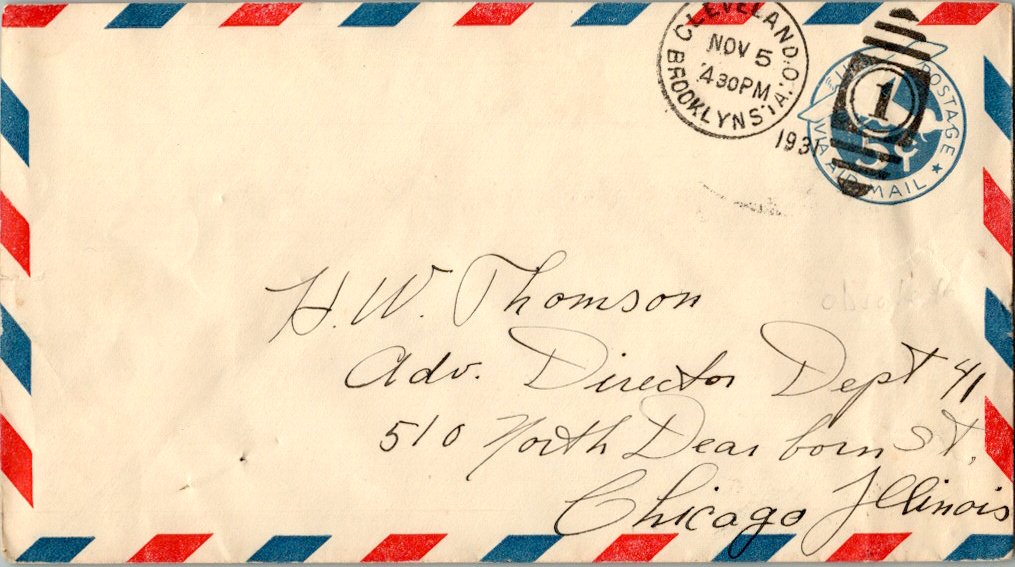 CLEVELAND, O.
BROOKLYN STA.
NOV 5
430PM
1931
1
POSTAGE
5¢
VIA AIR MAIL
H. W. Thomson
Adv. Director Dept 41
510 North Dearborn St,
Chicago Illinois